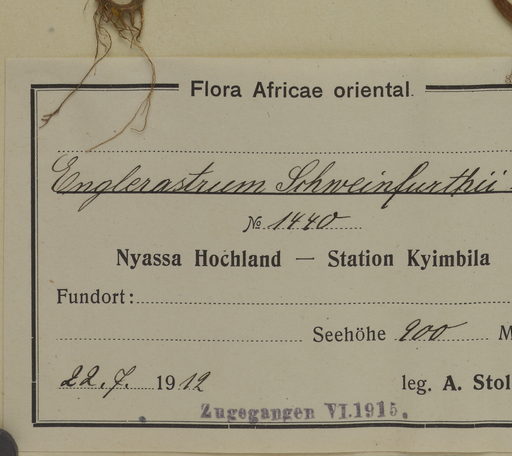 Flora Africae oriental.
Englerastrum Schweinfurthii
№ 1440
Nyassa Hochland — Station Kyimbila
Fundort:
Seehöhe 900 M
22.7. 1912
leg. A. Stol
Zugegangen VI.1915.